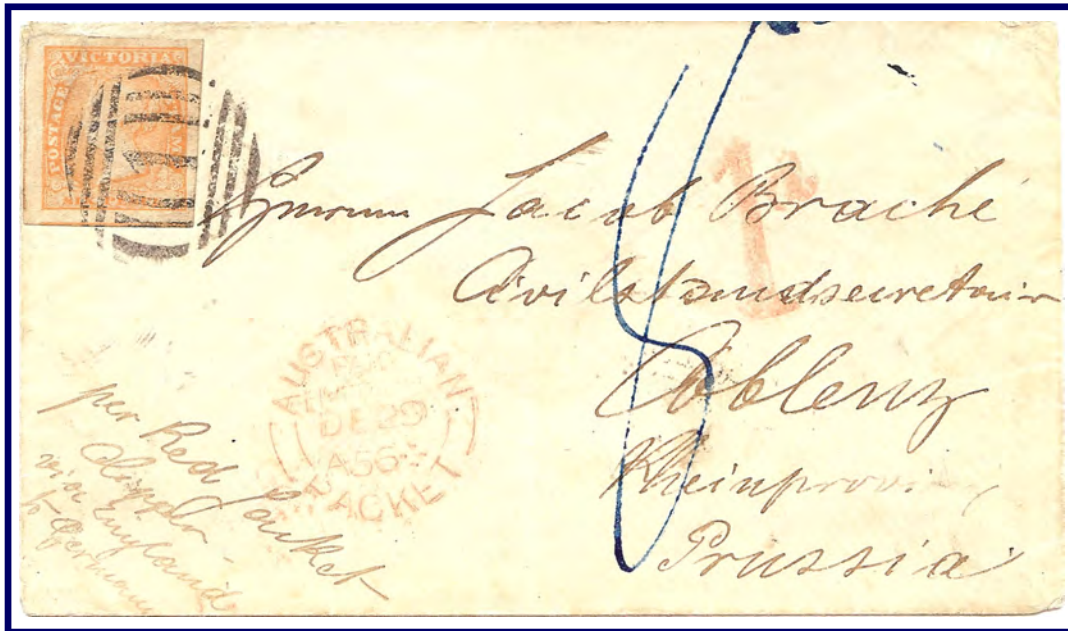 VICTORIA
POSTAGE STAMP
1
Jacob Braché
Civilstandsecretair
Coblenz
Rheinprovinz
Prussia
AUSTRALIAN
DE 29
A56
PACKET
per Red Jacket
Clipper
via England
to Germany